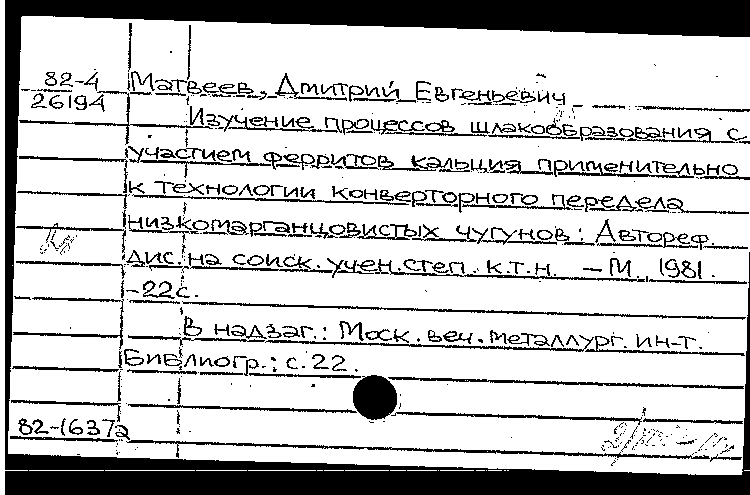 82-4
26194
Матвеев, Дмитрий Евгеньевич
Изучение процессов шлакообразования с
участием ферритов кальция применительно
к технологии конверторного передела
низкомарганцовистых чугунов: Автореф.
дис. на соиск. учен. степ. к.т.н. – М., 1981.
-22с.
В надзаг.: Моск. веч. металлург. ин-т.
Библиогр.: с. 22.
82-16372